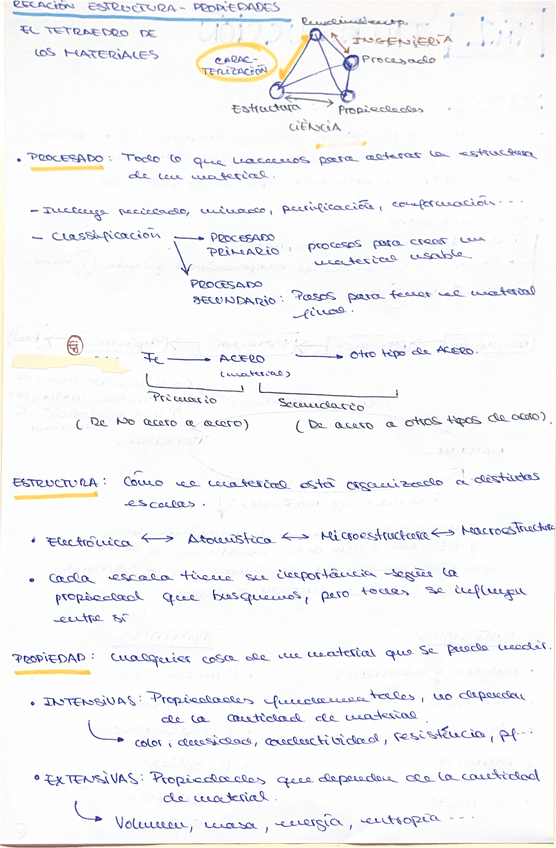 RELACIÓN ESTRUCTURA - PROPIEDADES
EL TETRAEDRO DE
LOS MATERIALES
CARAC-
TERIZACIÓN
Rendimiento
INGENIERÍA
Procesado
Estructura
Propiedades
CIÉNCIA
• PROCESADO: Todo lo que hacemos para alterar la estructura
de un material.
- Incluye reciclado, minado, purificación, conformación...
- Classificación → PROCESADO
PRIMARIO: procesos para crear un
material usable
PROCESADO
SECUNDARIO: Pasos para tener el material
final.
Ej ... Fe → ACERO → Otro tipo de ACERO.
(material)
Primario Secundario
(De No acero a acero) (De acero a otros tipos de acero).
ESTRUCTURA: Cómo el material está organizado a distintas
escalas.
• Electrónica ↔ Atomística ↔ Microestructura ↔ Macroestructura
• Cada escala tiene su importáncia según la
propiedad que busquemos, pero todas se influyen
entre sí
PROPIEDAD: Cualquier cosa de un material que se puede medir.
• INTENSIVAS: Propiedades fundamentales, no dependen
de la cantidad de material.
color, densidad, conductividad, resisténcia, pf...
• EXTENSIVAS: Propiedades que dependen de la cantidad
de material.
Volumen, masa, energía, entropía ...